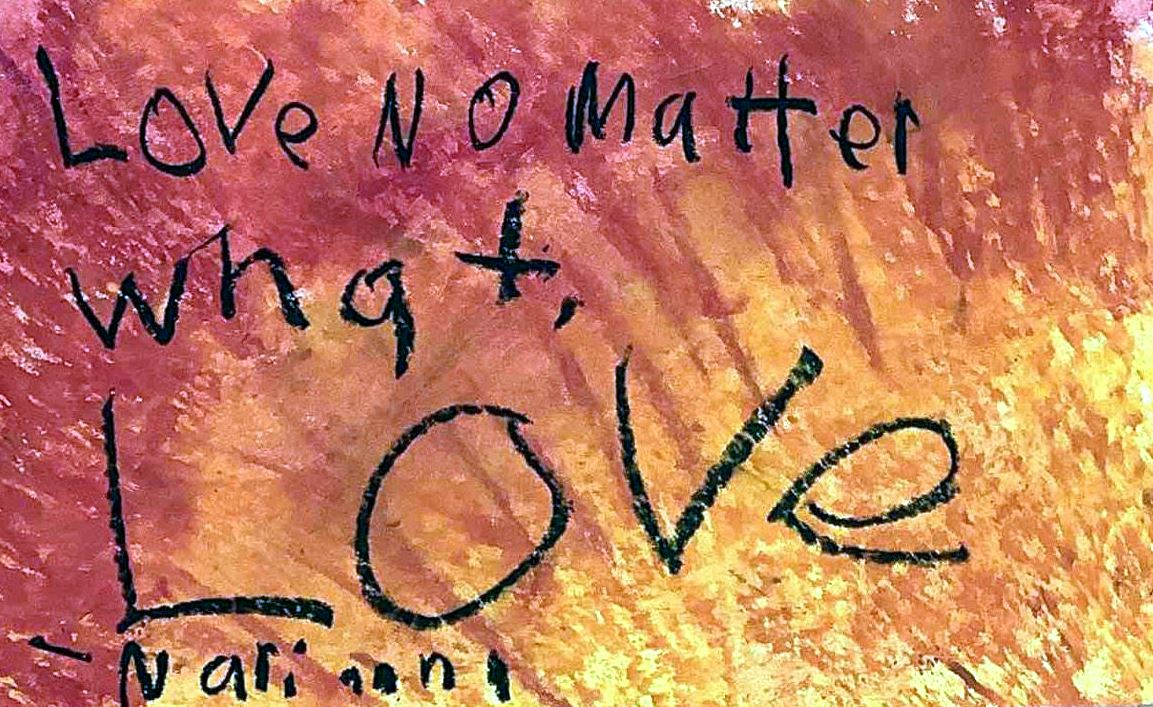 Love No Matter
what,
Love